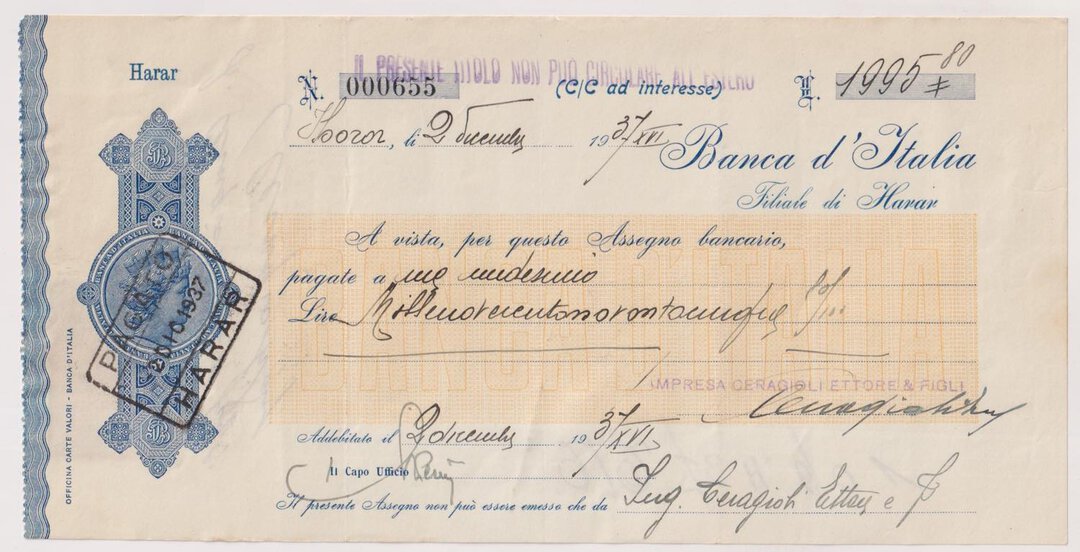 Harar
IL PRESENTE TITOLO NON PUÒ CIRCOLARE ALL'ESTERO
N. 000655 (C/C ad interesse) L. 1995 80
Harar, li 2 Dicembre 1937/XVI
Banca d'Italia
Filiale di Harar
A vista, per questo Assegno bancario,
pagate a me medesimo
Lire Millenovecentonovantacinque 80/100
BANCA D'ITALIA
IMPRESA CERAGIOLI ETTORE & FIGLI
PAGATO
HARAR
Addebitato il 2 dicembre 1937/XVI
Il Capo Ufficio
Il presente Assegno non può essere emesso che da Ing. Ceragioli Ettore e F
OFFICINA CARTE VALORI - BANCA D'ITALIA